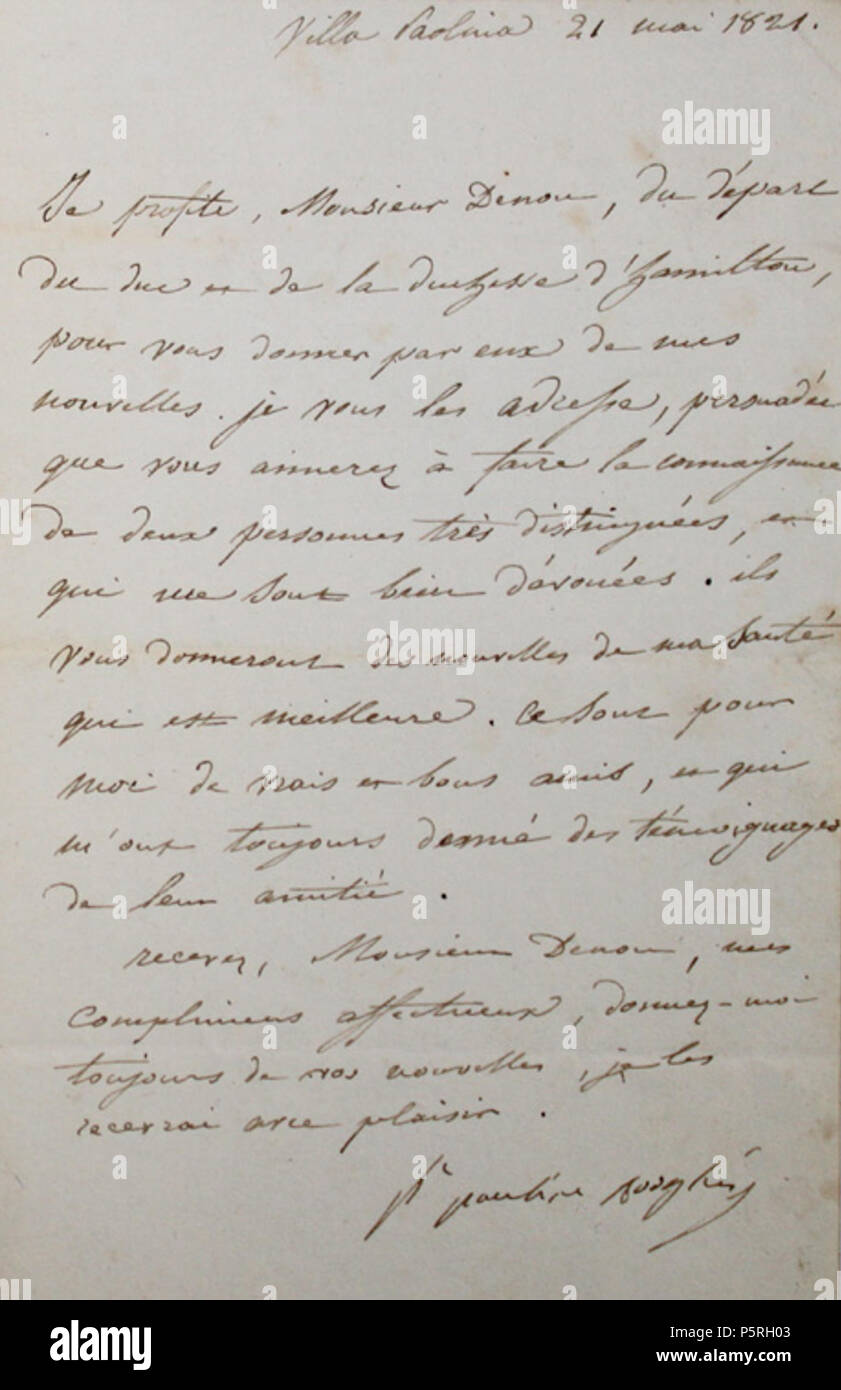 Villa Paolina 21 mai 1821.
Je profite, Monsieur Denon, du départ
du duc et de la duchesse d'hamilton,
pour vous donner par eux de mes
nouvelles. je vous les adresse, persuadée
que vous aimerez à faire la connaissance
de deux personnes très distinguées, et
qui me sont bien dévouées. ils
vous donneront des nouvelles de ma santé
qui est meilleure. Ce sont pour
moi de vrais et bons amis, et qui
m'ont toujours donné des témoignages
de leur amitié.
recevez, Monsieur Denon, mes
complimens affectueux, donnez-moi
toujours de vos nouvelles, je les
recevrai avec plaisir.
Psse pauline Borghèse
alamy
Image ID: P5RH03
www.alamy.com